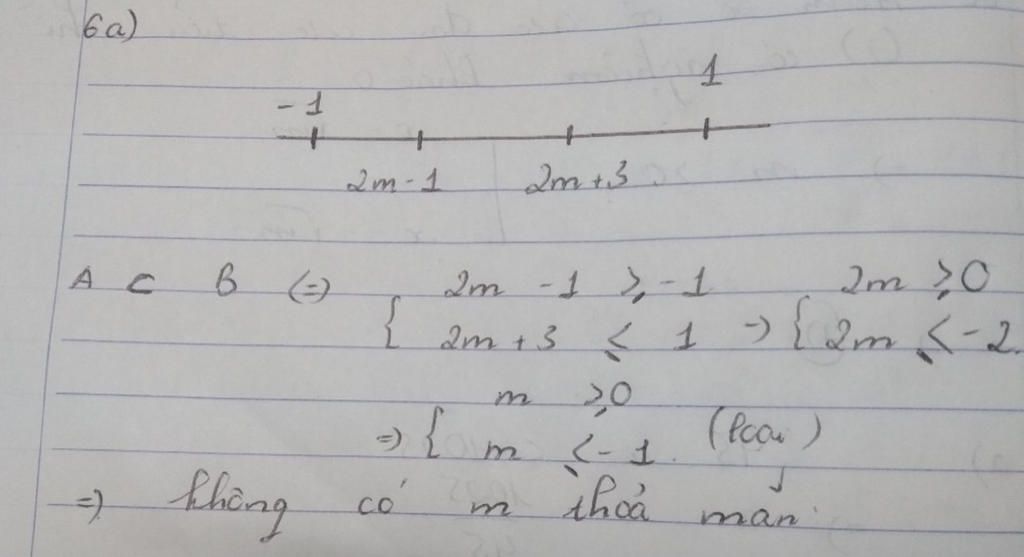 6a)
-1 1
2m - 1 2m + 3
A ⊂ B (=) { 2m - 1 ⩾ -1 2m ⩾ 0
2m + 3 ⩽ 1 → { 2m ⩽ -2.
m ⩾ 0
=) { m ⩽ -1. (loại)
=) không có m thoả mãn.